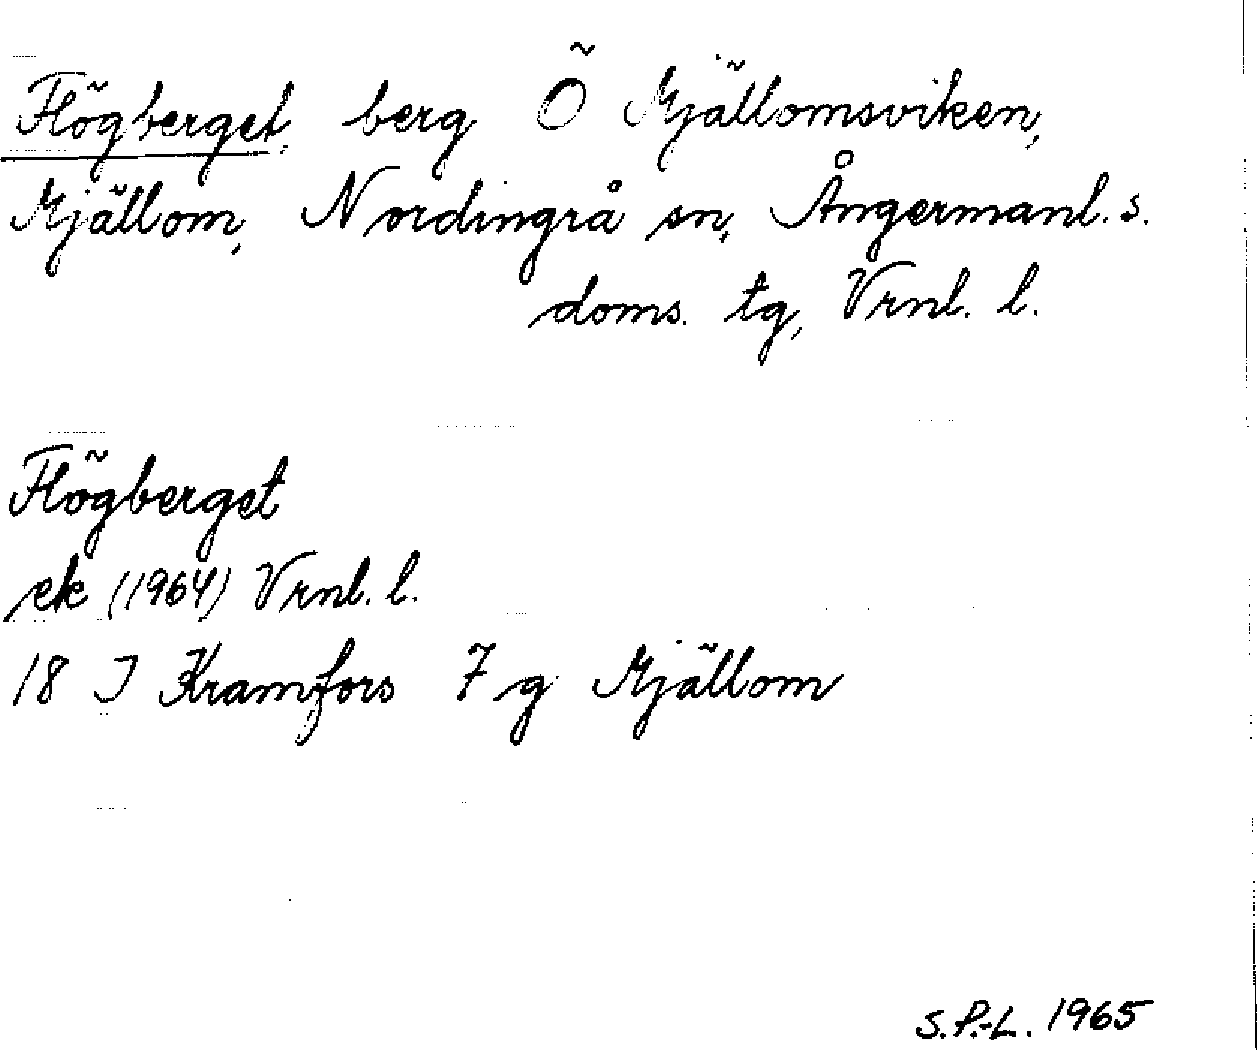 Högberget, berg Ö Mjällomsviken,
Mjällom, Nordingrå sn, Ångermanl. s.
doms. tg, Vrnl. l.
Högberget
ek (1964) Vrnl. l.
18 I Kramfors 7 g Mjällom
S.P.-L. 1965